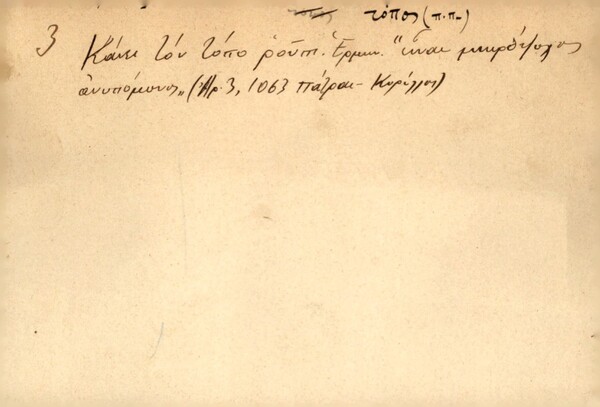 τόπος (π.π.)
3 Κάνει τόν τόπο ρούπι. Ἑρμην. "εἶναι μικρόψυχος
ἀνυπόμονος„ (Ἀρ. 3, 1063 Πάτραι - Κορύλλος)